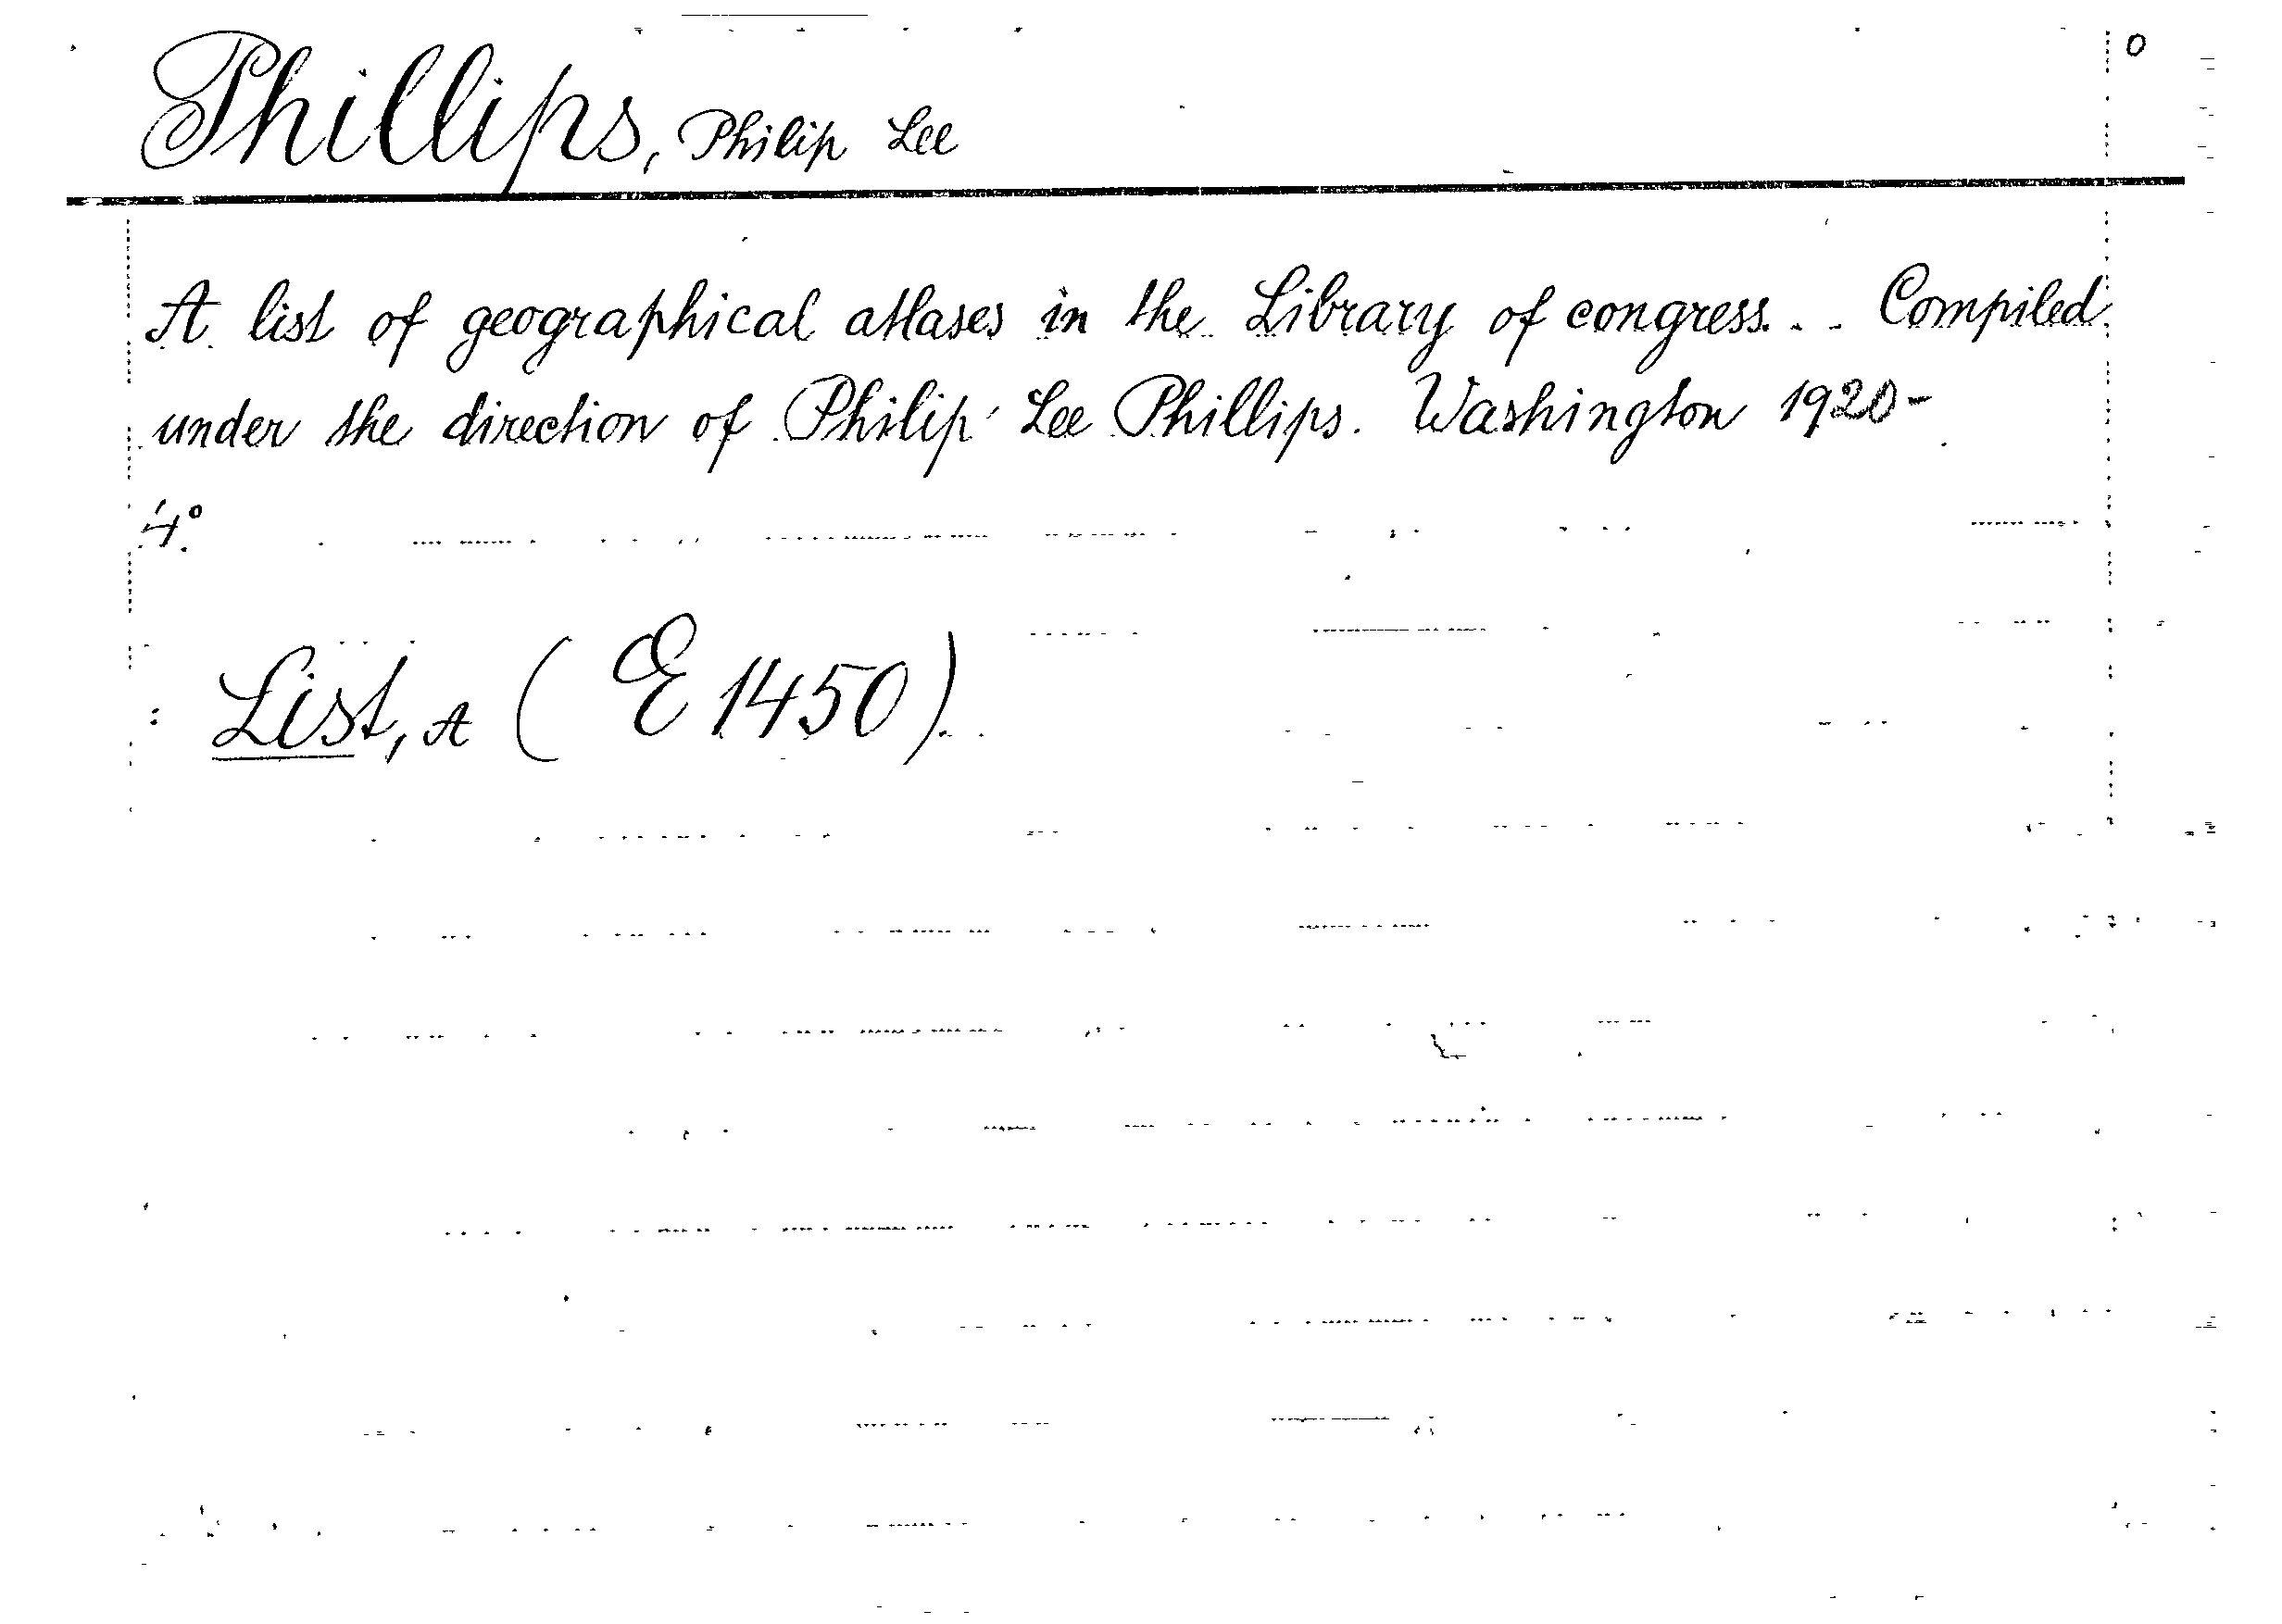 Phillips, Philip Lee
A list of geographical atlases in the Library of congress... Compiled
under the direction of Philip Lee Phillips. Washington 1920-
4°.
List, A (E 1450).